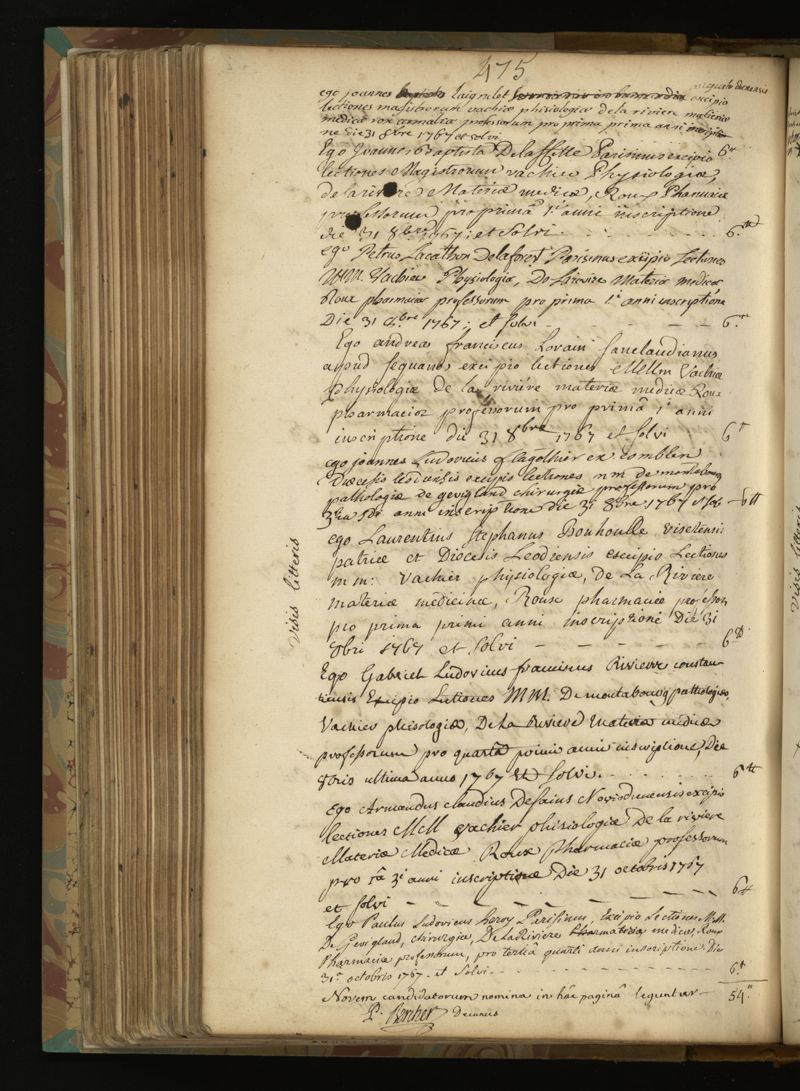 475
ego joannes Laignelet excipio
lectiones magistrorum vachier phisiologiæ de la riviere materiei
medicæ roux professorum pro prima prima anni inscriptio
ne die 31 8bre 1767 et solvi 6
Ego Joannes Baptista Delassille Parisinus excipio
lectiones Magistrorum vachier Physiologiæ,
de la riviere Materiæ medicæ, Roux Pharmaciæ
professorum pro primâ 1i anni inscriptione
die 31 8bris 1767; et solvi. 6 tt
ego Petrus Lacathon Delaforest Parisinus excipio Lectiones
MM. Vachier Physiologiæ, De Lariviere Materiæ medicæ
Roux pharmaciæ professorum pro prima 1i anni inscriptione
Die 31 8.bre 1767; et solvi 6
Ego andreas franciscus Lorain Sanclaudianus
apud sequanos excipio lectiones MM Vachier
physiologiæ de la riviére materiæ medicæ Roux
pharmaciæ professorum pro primâ 1i anni
inscriptione die 31 8bre 1767 et solvi 6
ego joannes Ludovicus ex
Diœcesis leodiensis excipio lectiones mm de montabourg
pathologiæ de gevigland chirurgiæ professorum pro
3tia anni inscriptione die 31 8bre 1767 et sol 6 tt
ego Laurentius Stephanus Bouhoulle visetensis
patriæ et Diœcesis Leodiensis excipio Lectiones
mm: Vachier physiologiæ, de La Riviere
materiæ medicinæ, Roux pharmaciæ professor.
pro prima primi anni inscriptione Die 31
8bri 1767 et solvi 6
Visis litteris
Ego Gabriel Ludovicus franciscus Riviere constan-
tiensis Excipio Lectiones MM. De montabourg pathologiæ,
Vachier phisologiæ, De La Riviere materiæ medicæ
professorum pro quartâ primi anni inscriptione, Die
8bris ultima anno 1767 et solvi. 6 tt
Ego Armandus claudius Defaius Noviodunensis excipio
lectiones MM vachier phisiologiæ De la riviere
Materiæ Medicæ Roux Pharmaciæ professorum
pro 1a 3i anni inscriptione Die 31 octobris 1767
et solvi 6 tt
Ego Paulus Ludovicus Leroy Parisinus, Excipio Lectiones MM.
De Gevigland, chirurgiæ, De La Riviere materiæ medicæ, Roux
Pharmaciæ professorum, pro tertiâ quarti anni inscriptione. Die
31a octobris 1767. et Solvi 6.
Novem candidatorum nomina in hâc paginâ leguntur 54
P. Bercher Decanus